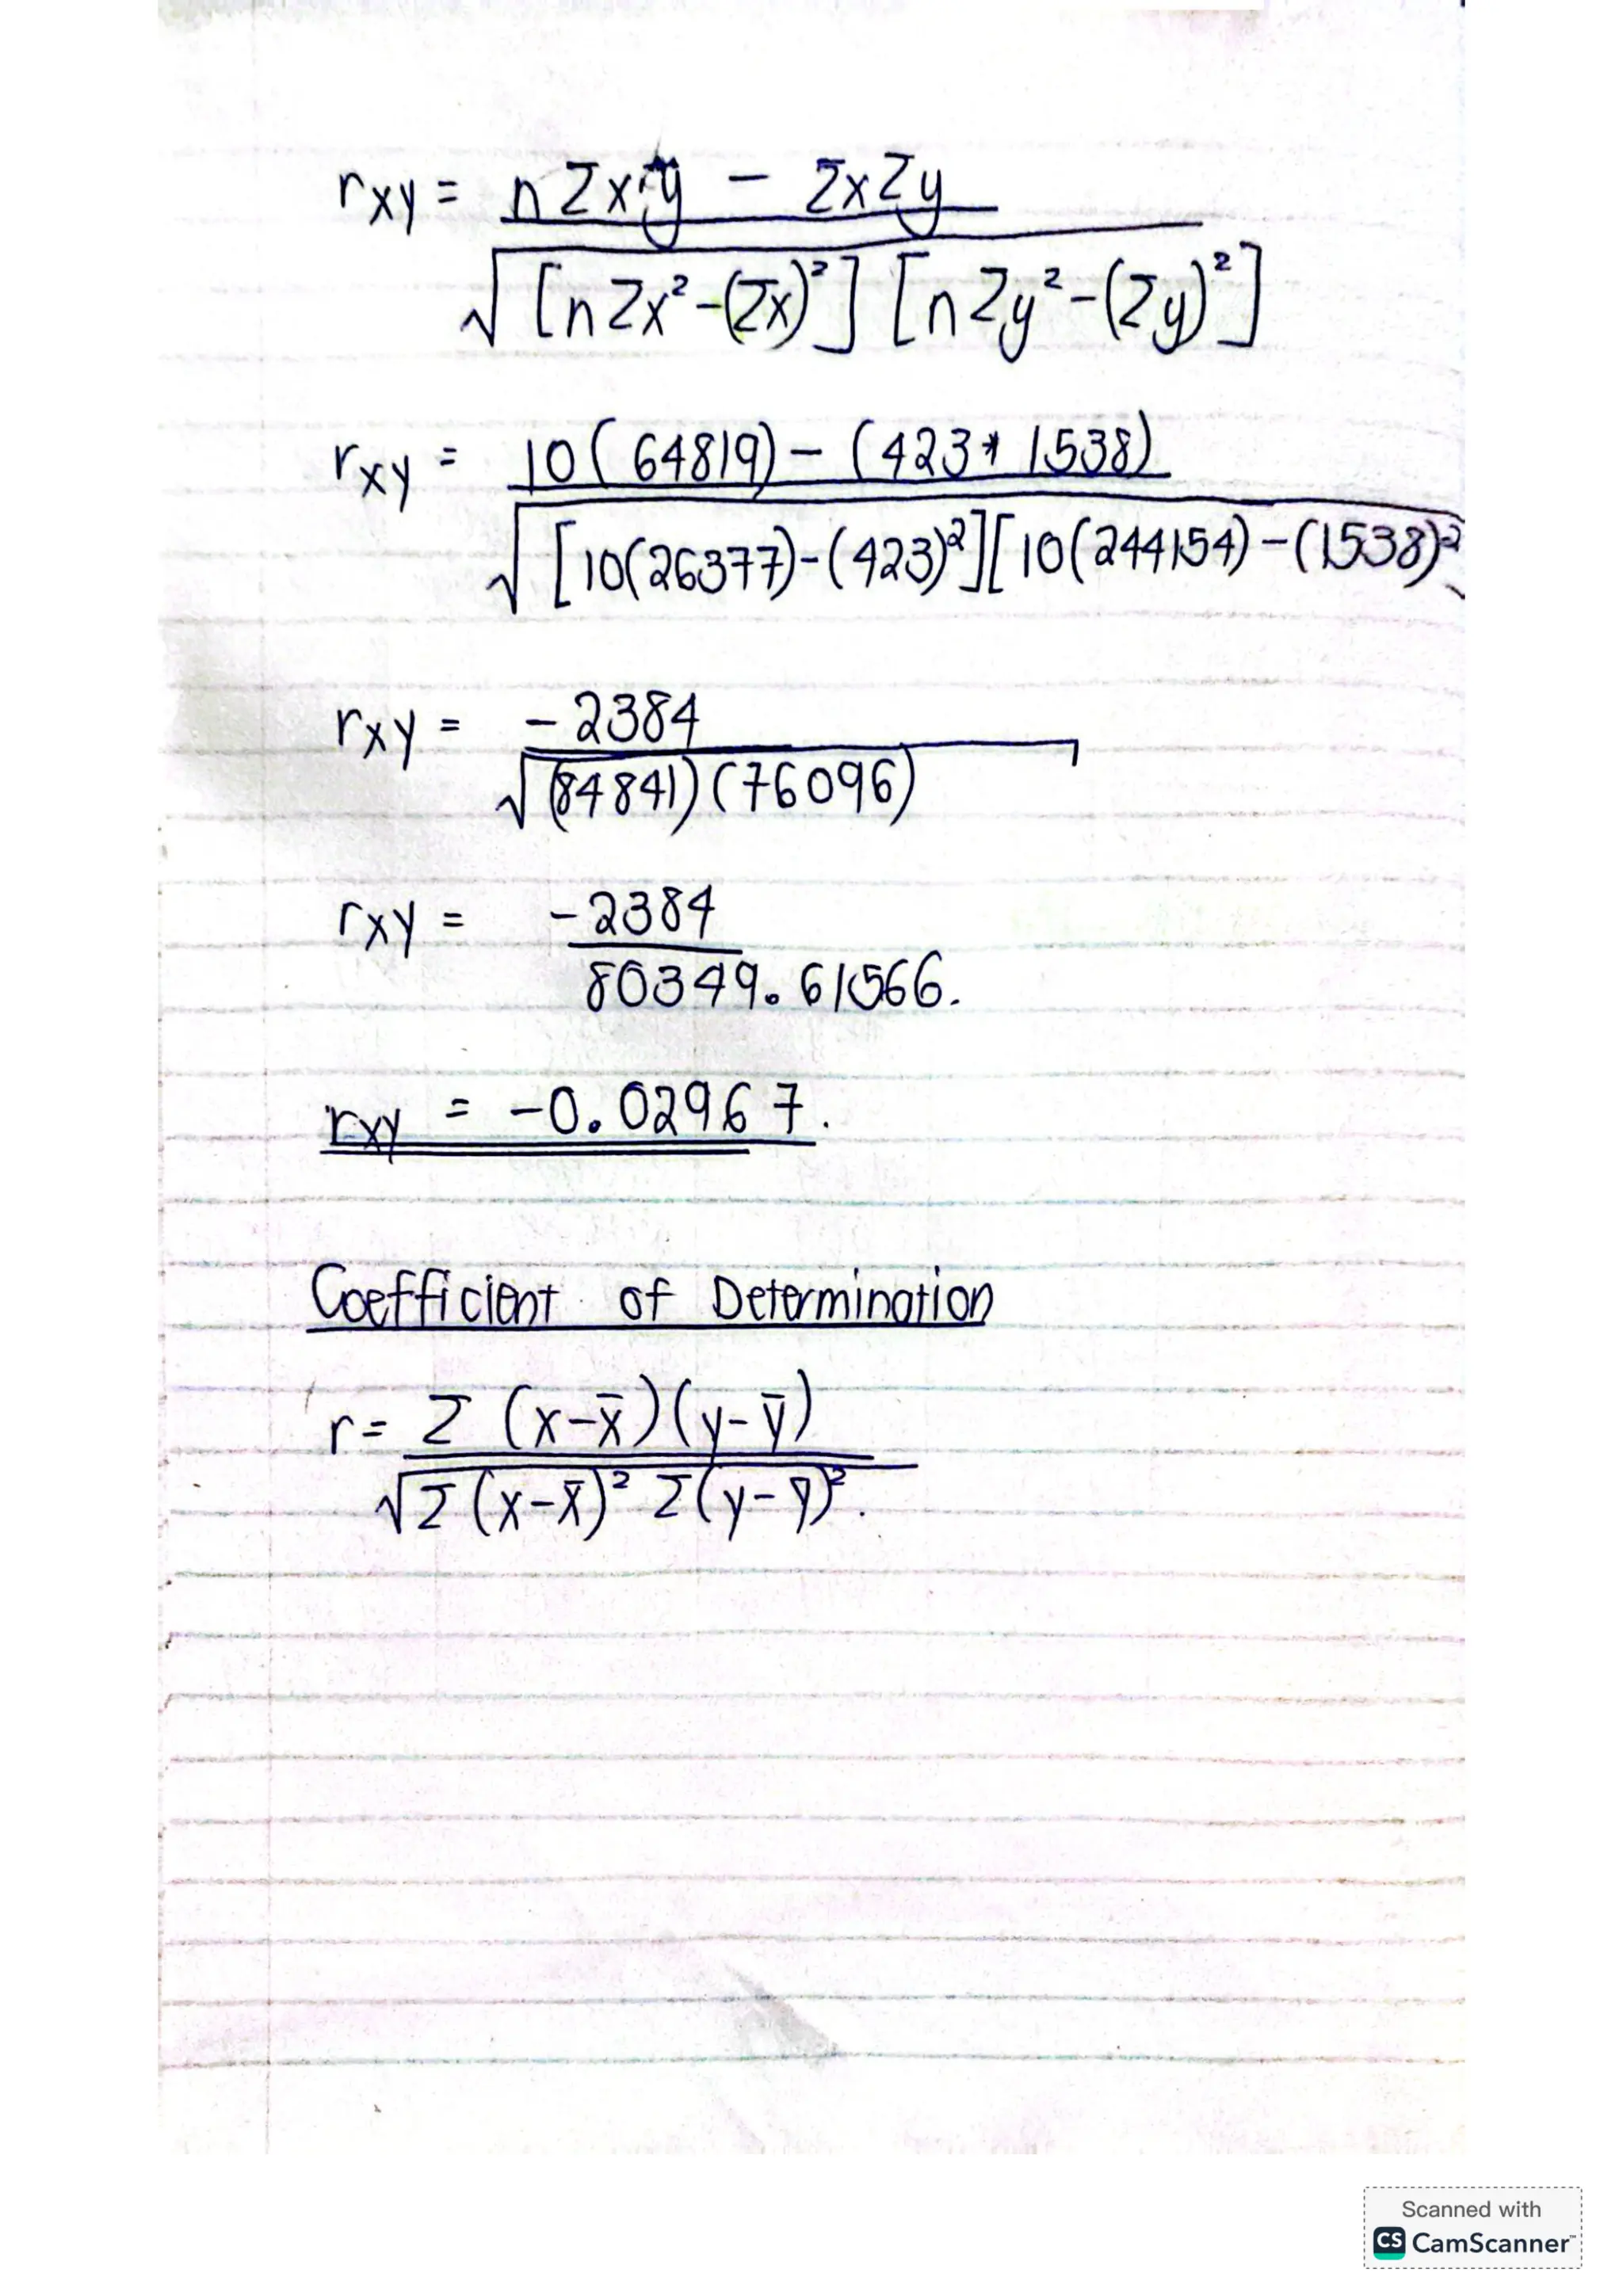 rxy = nΣxy - ΣxΣy
√[nΣx²-(Σx)²] [nΣy²-(Σy)²]
rxy = 10(64819) - (423* 1538)
√[10(26377)-(423)²][10(244154)-(1538)²
rxy = -2384
√(84841)(76096)
rxy = -2384
80349.61566.
rxy = -0.02967.
Coefficient of Determination
r= Σ (x-x̄)(y-ȳ)
√Σ(x-x̄)² Σ(y-ȳ)².
Scanned with
CS CamScanner™